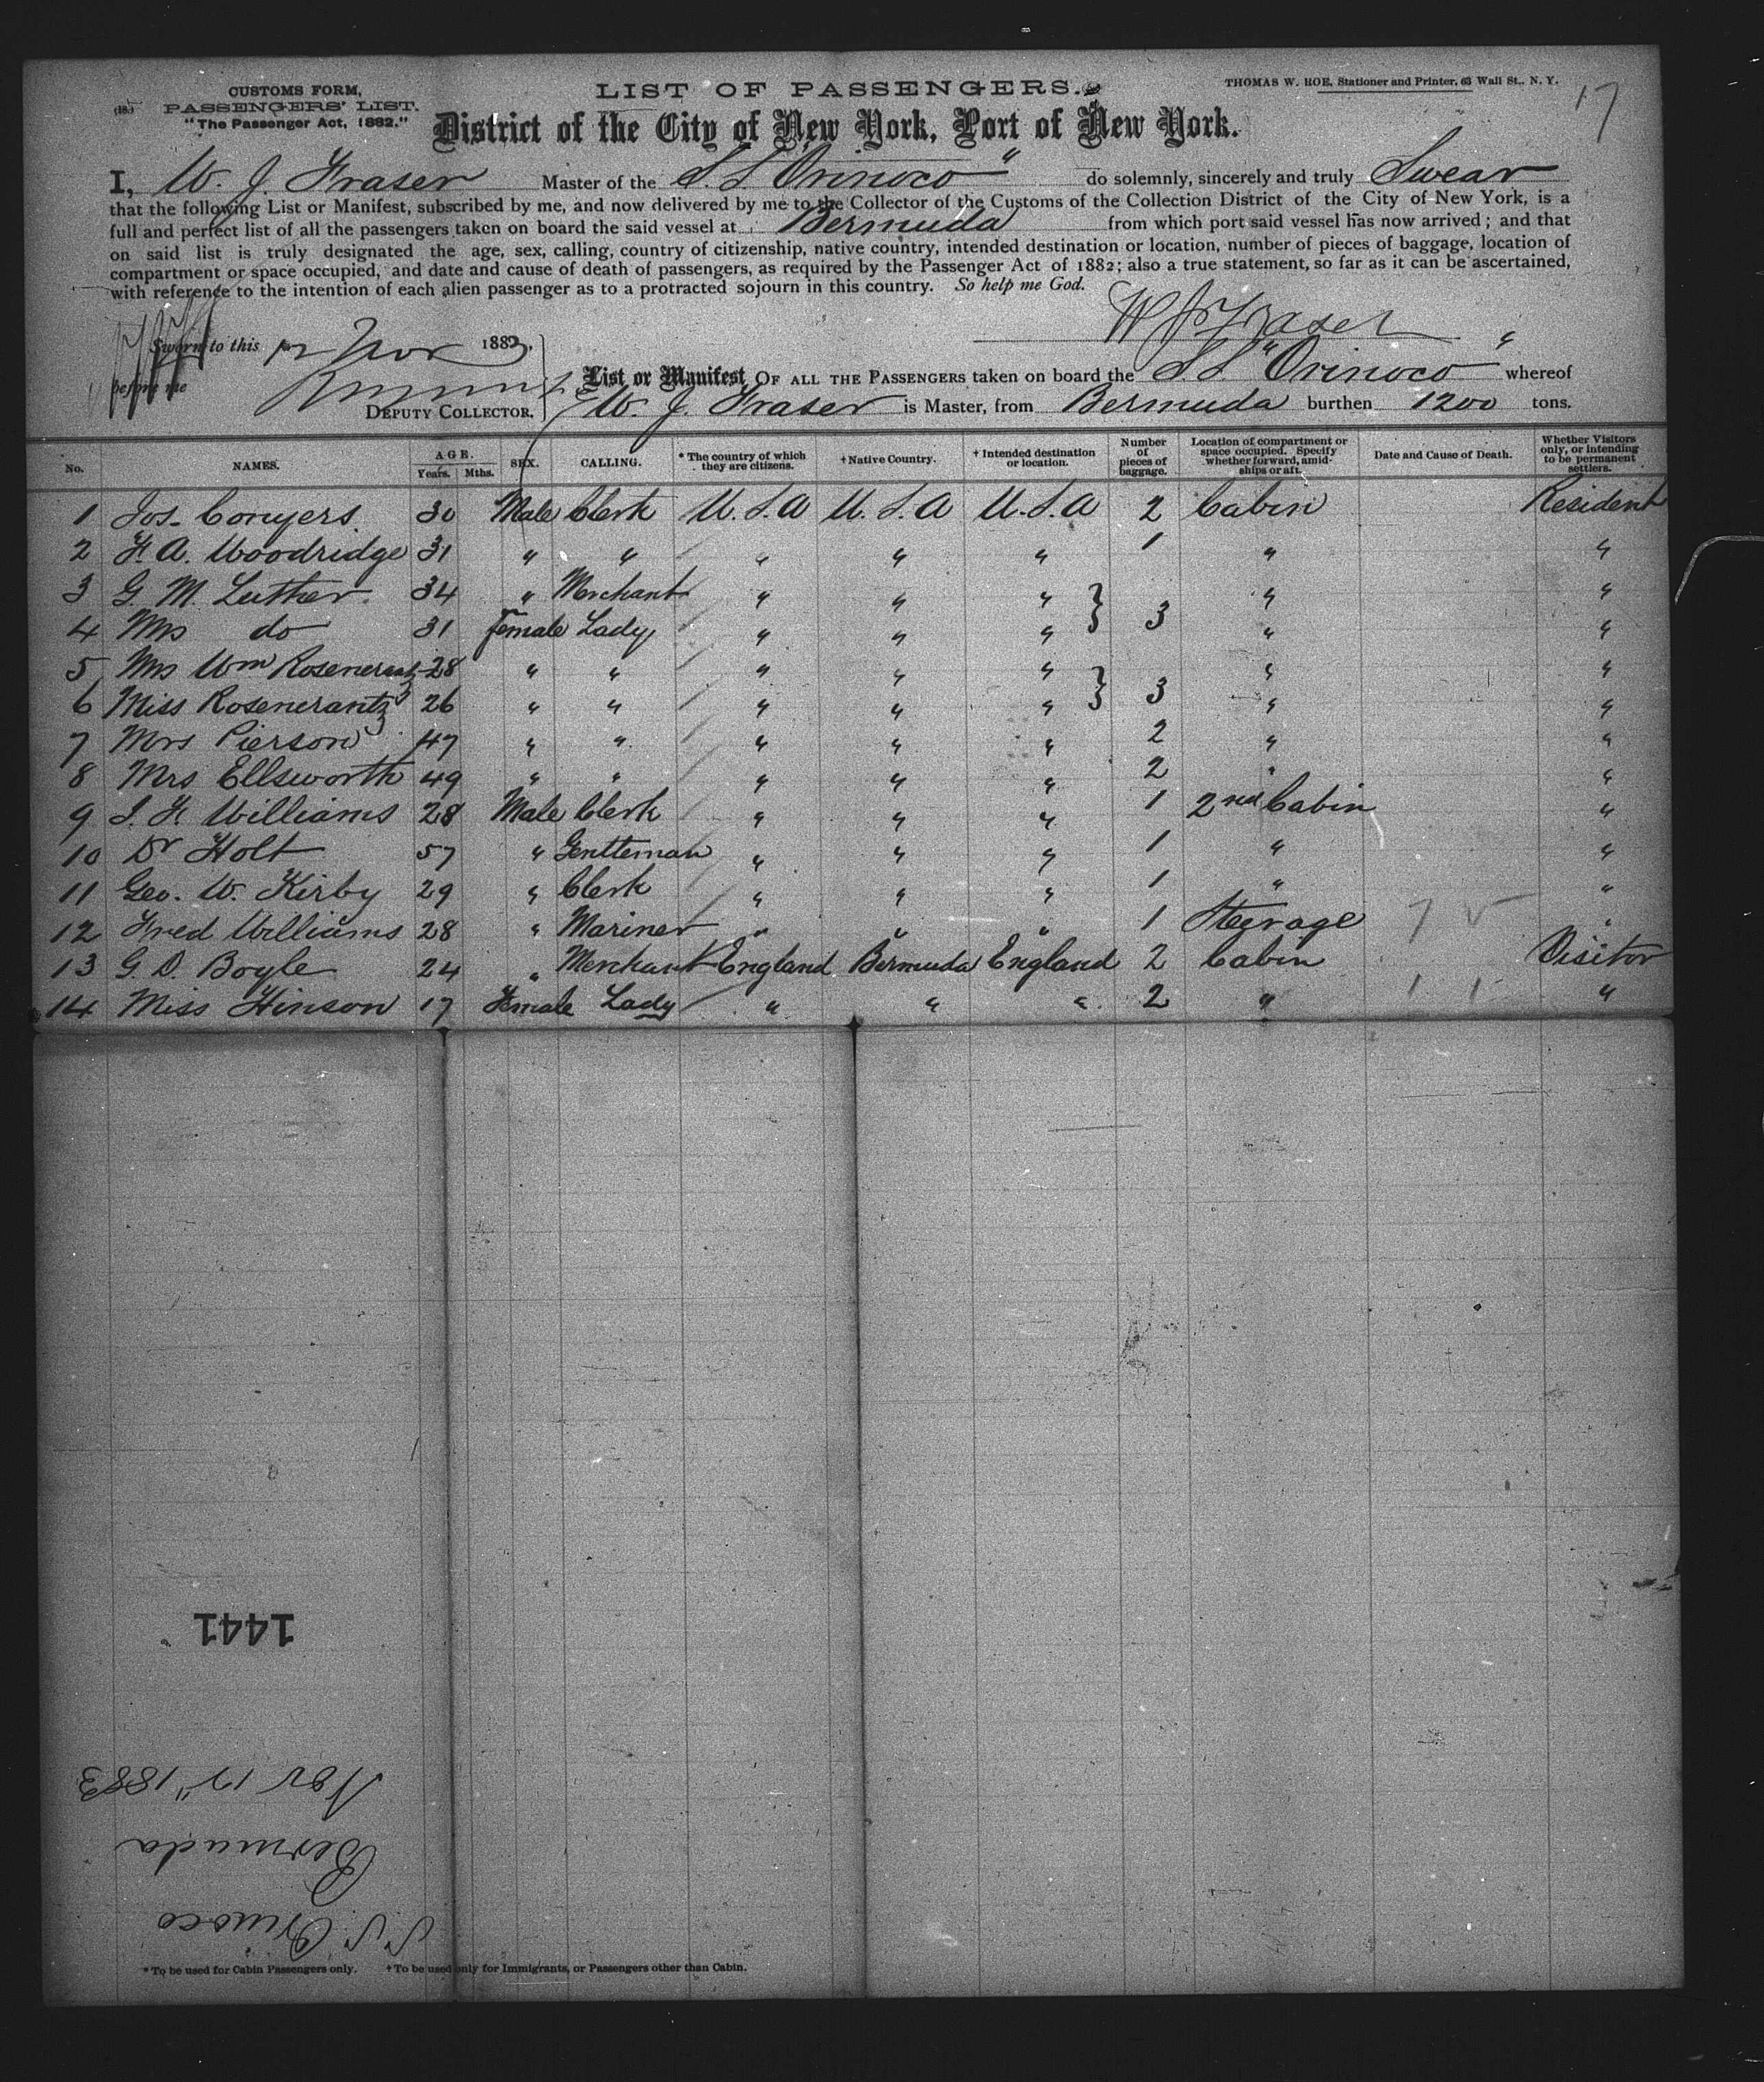 CUSTOMS FORM,
PASSENGERS' LIST.
"The Passenger Act, 1882."
LIST OF PASSENGERS.
THOMAS W. ROE, Stationer and Printer, 63 Wall St., N. Y.
17
District of the City of New York, Port of New York.
I, W. J. Fraser Master of the S.S. Orinoco" do solemnly, sincerely and truly Swear
that the following List or Manifest, subscribed by me, and now delivered by me to the Collector of the Customs of the Collection District of the City of New York, is a
full and perfect list of all the passengers taken on board the said vessel at Bermuda from which port said vessel has now arrived; and that
on said list is truly designated the age, sex, calling, country of citizenship, native country, intended destination or location, number of pieces of baggage, location of
compartment or space occupied, and date and cause of death of passengers, as required by the Passenger Act of 1882; also a true statement, so far as it can be ascertained,
with reference to the intention of each alien passenger as to a protracted sojourn in this country. So help me God.
W J Fraser
Sworn to this 12 Nov 1883,
before me
DEPUTY COLLECTOR.
List or Manifest OF ALL THE PASSENGERS taken on board the S.S "Orinoco" whereof
W. J. Fraser is Master, from Bermuda burthen 1200 tons.
No. NAMES. AGE. Years. Mths. SEX. CALLING. * The country of which they are citizens. † Native Country. † Intended destination or location. Number of pieces of baggage. Location of compartment or space occupied. Specify whether forward, amidships or aft. Date and Cause of Death. Whether Visitors only, or intending to be permanent settlers.
1 Jos. Conyers 30 Male Clerk U.S.A U.S.A U.S.A 2 Cabin Resident
2 F. A. Woodridge 31 " " " " " 1 " "
3 G. M. Luther 34 " Merchant " " " } 3 " "
4 Mrs do 31 Female Lady " " " " "
5 Mrs Wm Rosencrantz 28 " " " " " } 3 " "
6 Miss Rosencrantz 26 " " " " " " "
7 Mrs Pierson 47 " " " " " 2 " "
8 Mrs Ellsworth 49 " " " " " 2 " "
9 S. F. Williams 28 Male Clerk " " " 1 2nd Cabin "
10 Dr Holt 57 " Gentleman " " " 1 " "
11 Geo. W. Kirby 29 " Clerk " " " 1 " "
12 Fred Williams 28 " Mariner " " " 1 Steerage "
13 G. D. Boyle 24 " Merchant England Bermuda England 2 Cabin Visitor
14 Miss Hinson 17 Female Lady " " " 2 " "
1441
Nov 12" 1883
Bermuda
S.S. Orinoco
* To be used for Cabin Passengers only. † To be used only for Immigrants, or Passengers other than Cabin.